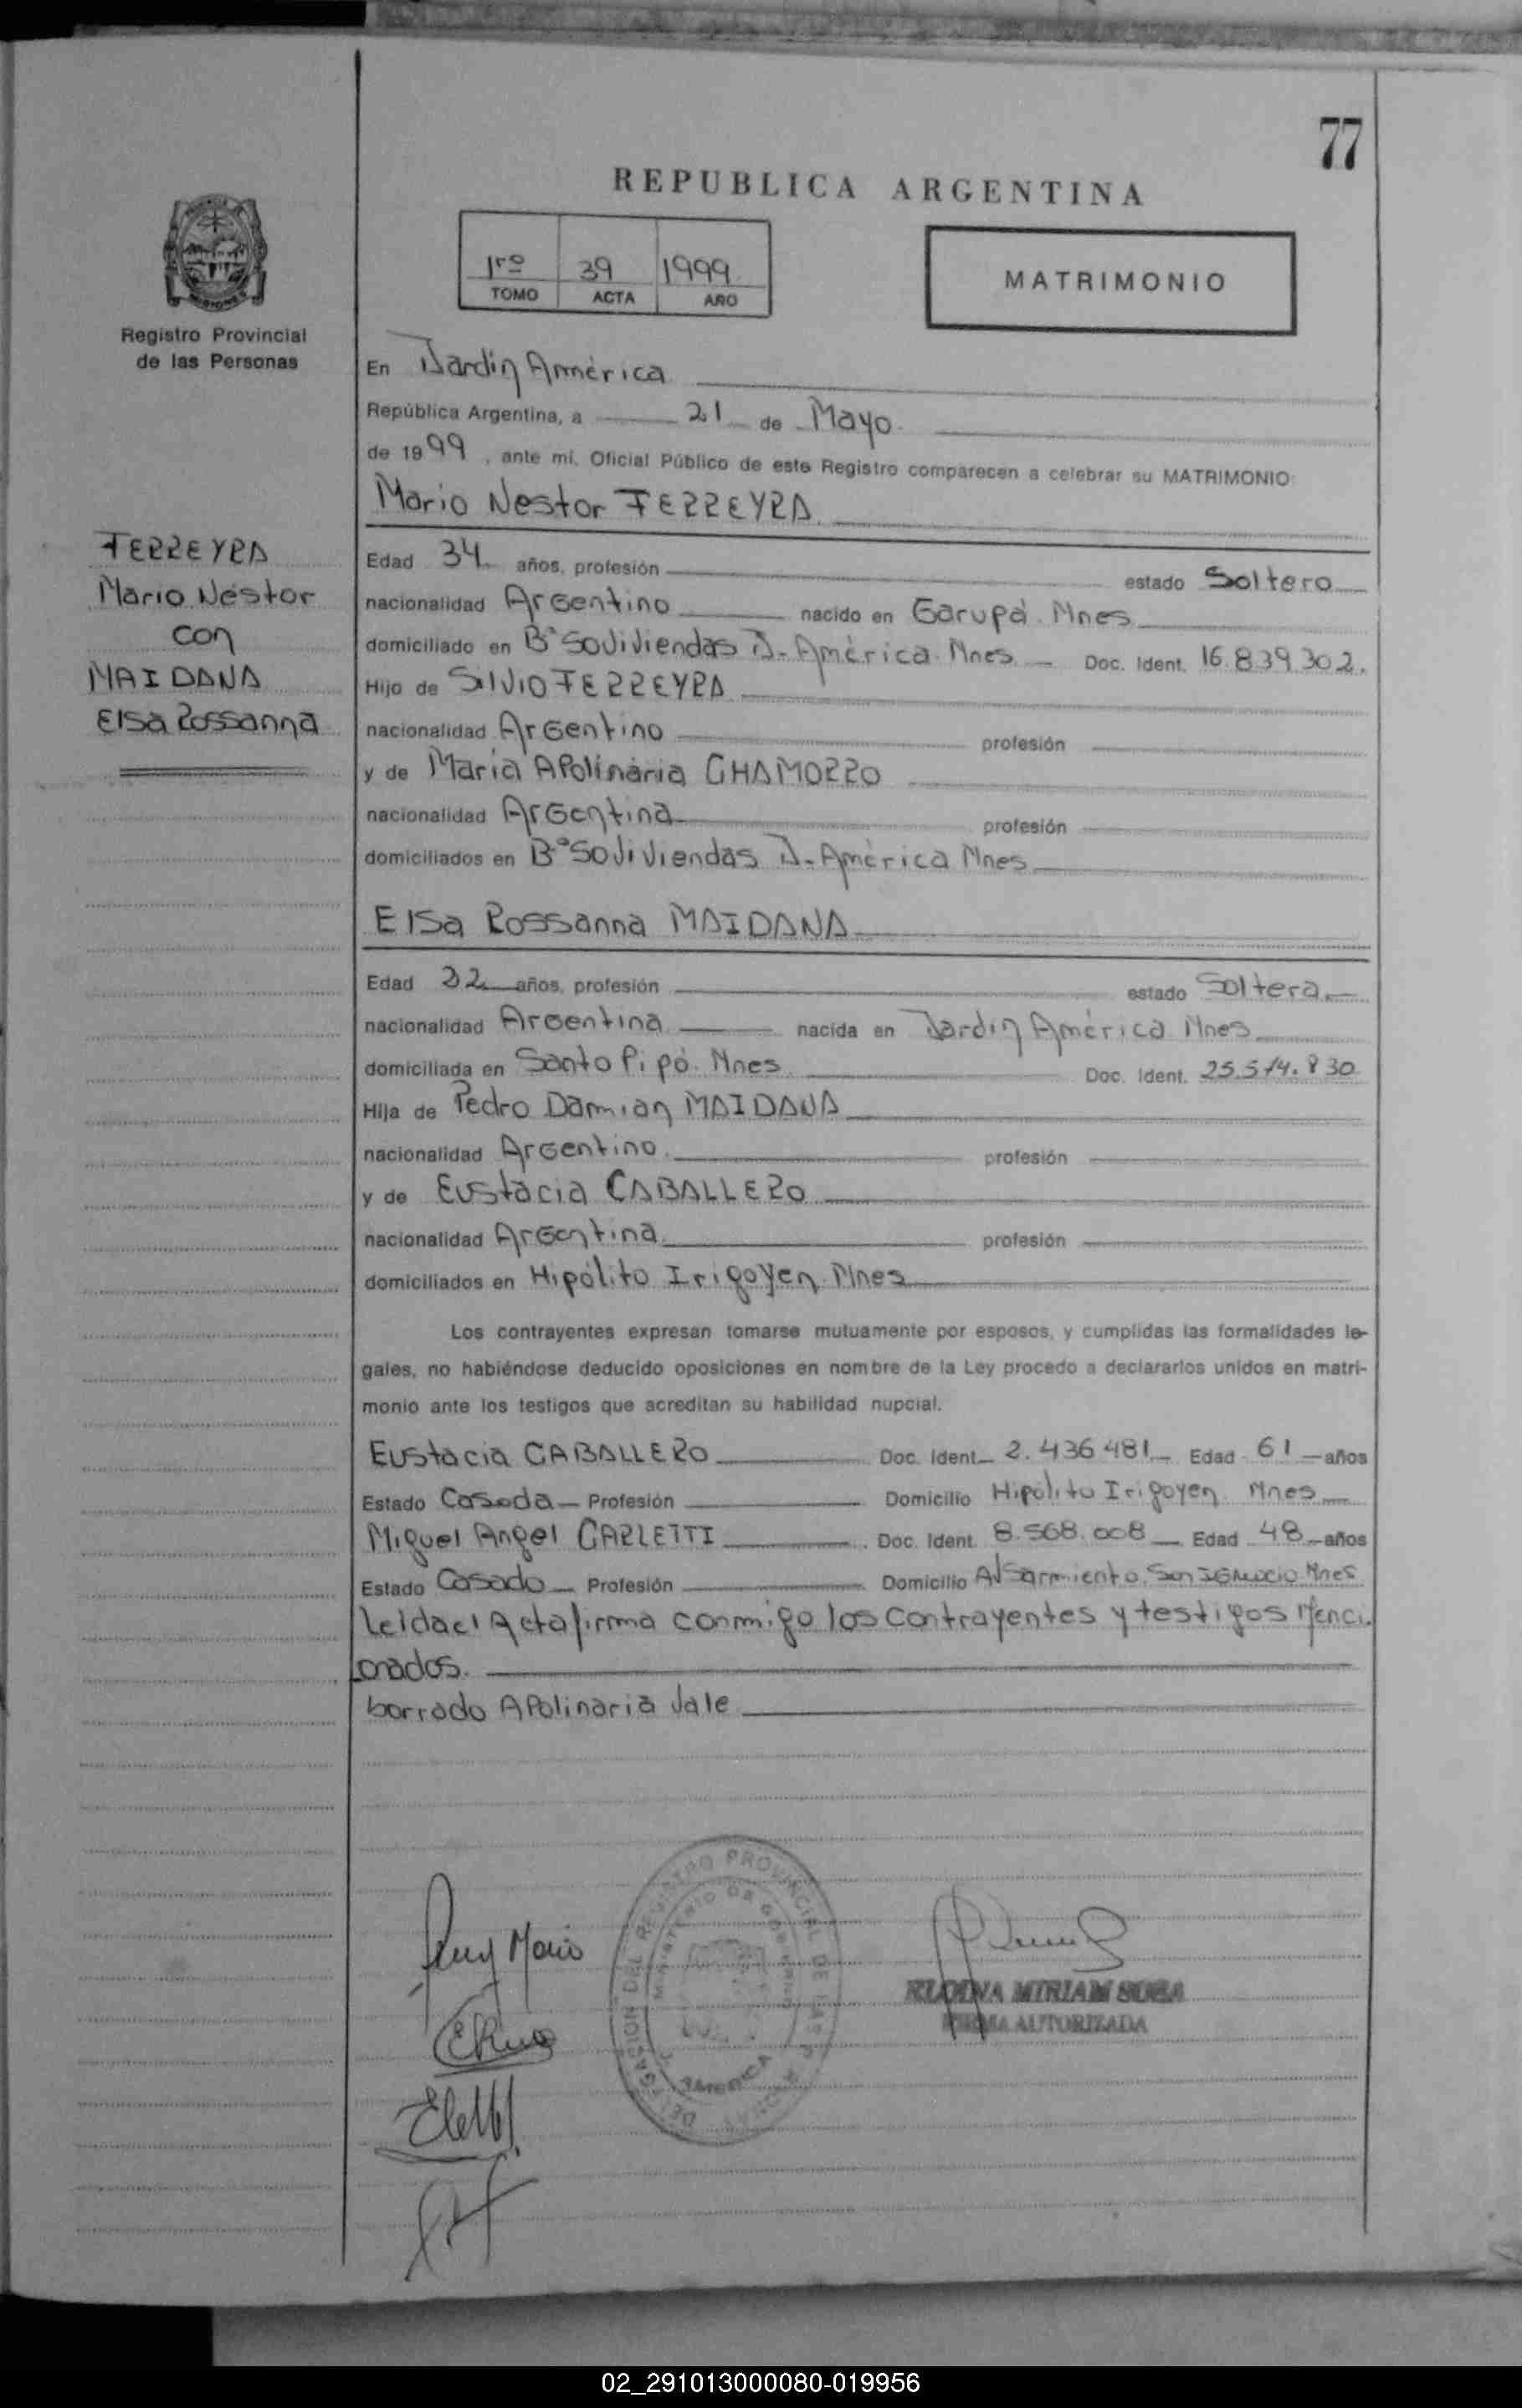 77
REPUBLICA ARGENTINA
1ro 39 1999
TOMO ACTA AÑO
MATRIMONIO
Registro Provincial
de las Personas
En Jardín América
República Argentina, a 21 de Mayo
de 1999, ante mí, Oficial Público de este Registro comparecen a celebrar su MATRIMONIO
Mario Nestor FERREYRA
FERREYRA
Mario Néstor
con
MAIDANA
Elsa Rossanna
Edad 34 años, profesión estado Soltero
nacionalidad Argentino nacido en Garupá Mnes
domiciliado en Bº 50 Viviendas J. América Mnes Doc. Ident. 16.839.302.
Hijo de Silvio FERREYRA
nacionalidad Argentino profesión
y de María Apolinaria CHAMORRO
nacionalidad Argentina profesión
domiciliados en Bº 50 Viviendas J. América Mnes
Elsa Rossanna MAIDANA
Edad 22 años, profesión estado Soltera
nacionalidad Argentina nacida en Jardín América Mnes
domiciliada en Santo Pipó Mnes Doc. Ident. 25.514.830
Hija de Pedro Damian MAIDANA
nacionalidad Argentino profesión
y de Eustacia CABALLERO
nacionalidad Argentina profesión
domiciliados en Hipólito Irigoyen Mnes
Los contrayentes expresan tomarse mutuamente por esposos, y cumplidas las formalidades le-
gales, no habiéndose deducido oposiciones en nombre de la Ley procedo a declararlos unidos en matri-
monio ante los testigos que acreditan su habilidad nupcial.
Eustacia CABALLERO Doc. Ident. 2.436.481 Edad 61 años
Estado Casada Profesión Domicilio Hipólito Irigoyen Mnes
Miguel Angel CARLETTI Doc. Ident. 8.568.008 Edad 48 años
Estado Casado Profesión Domicilio Av Sarmiento. San Ignacio Mnes
Leída el Acta firma conmigo los contrayentes y testigos menci
onados.
borrado Apolinaria Vale
Mario
DELEGACION DEL REGISTRO PROVINCIAL DE LAS PERSONAS
MINISTERIO DE GOBIERNO
J. AMERICA
MIRIAM SOSA
FIRMA AUTORIZADA
02_291013000080-019956